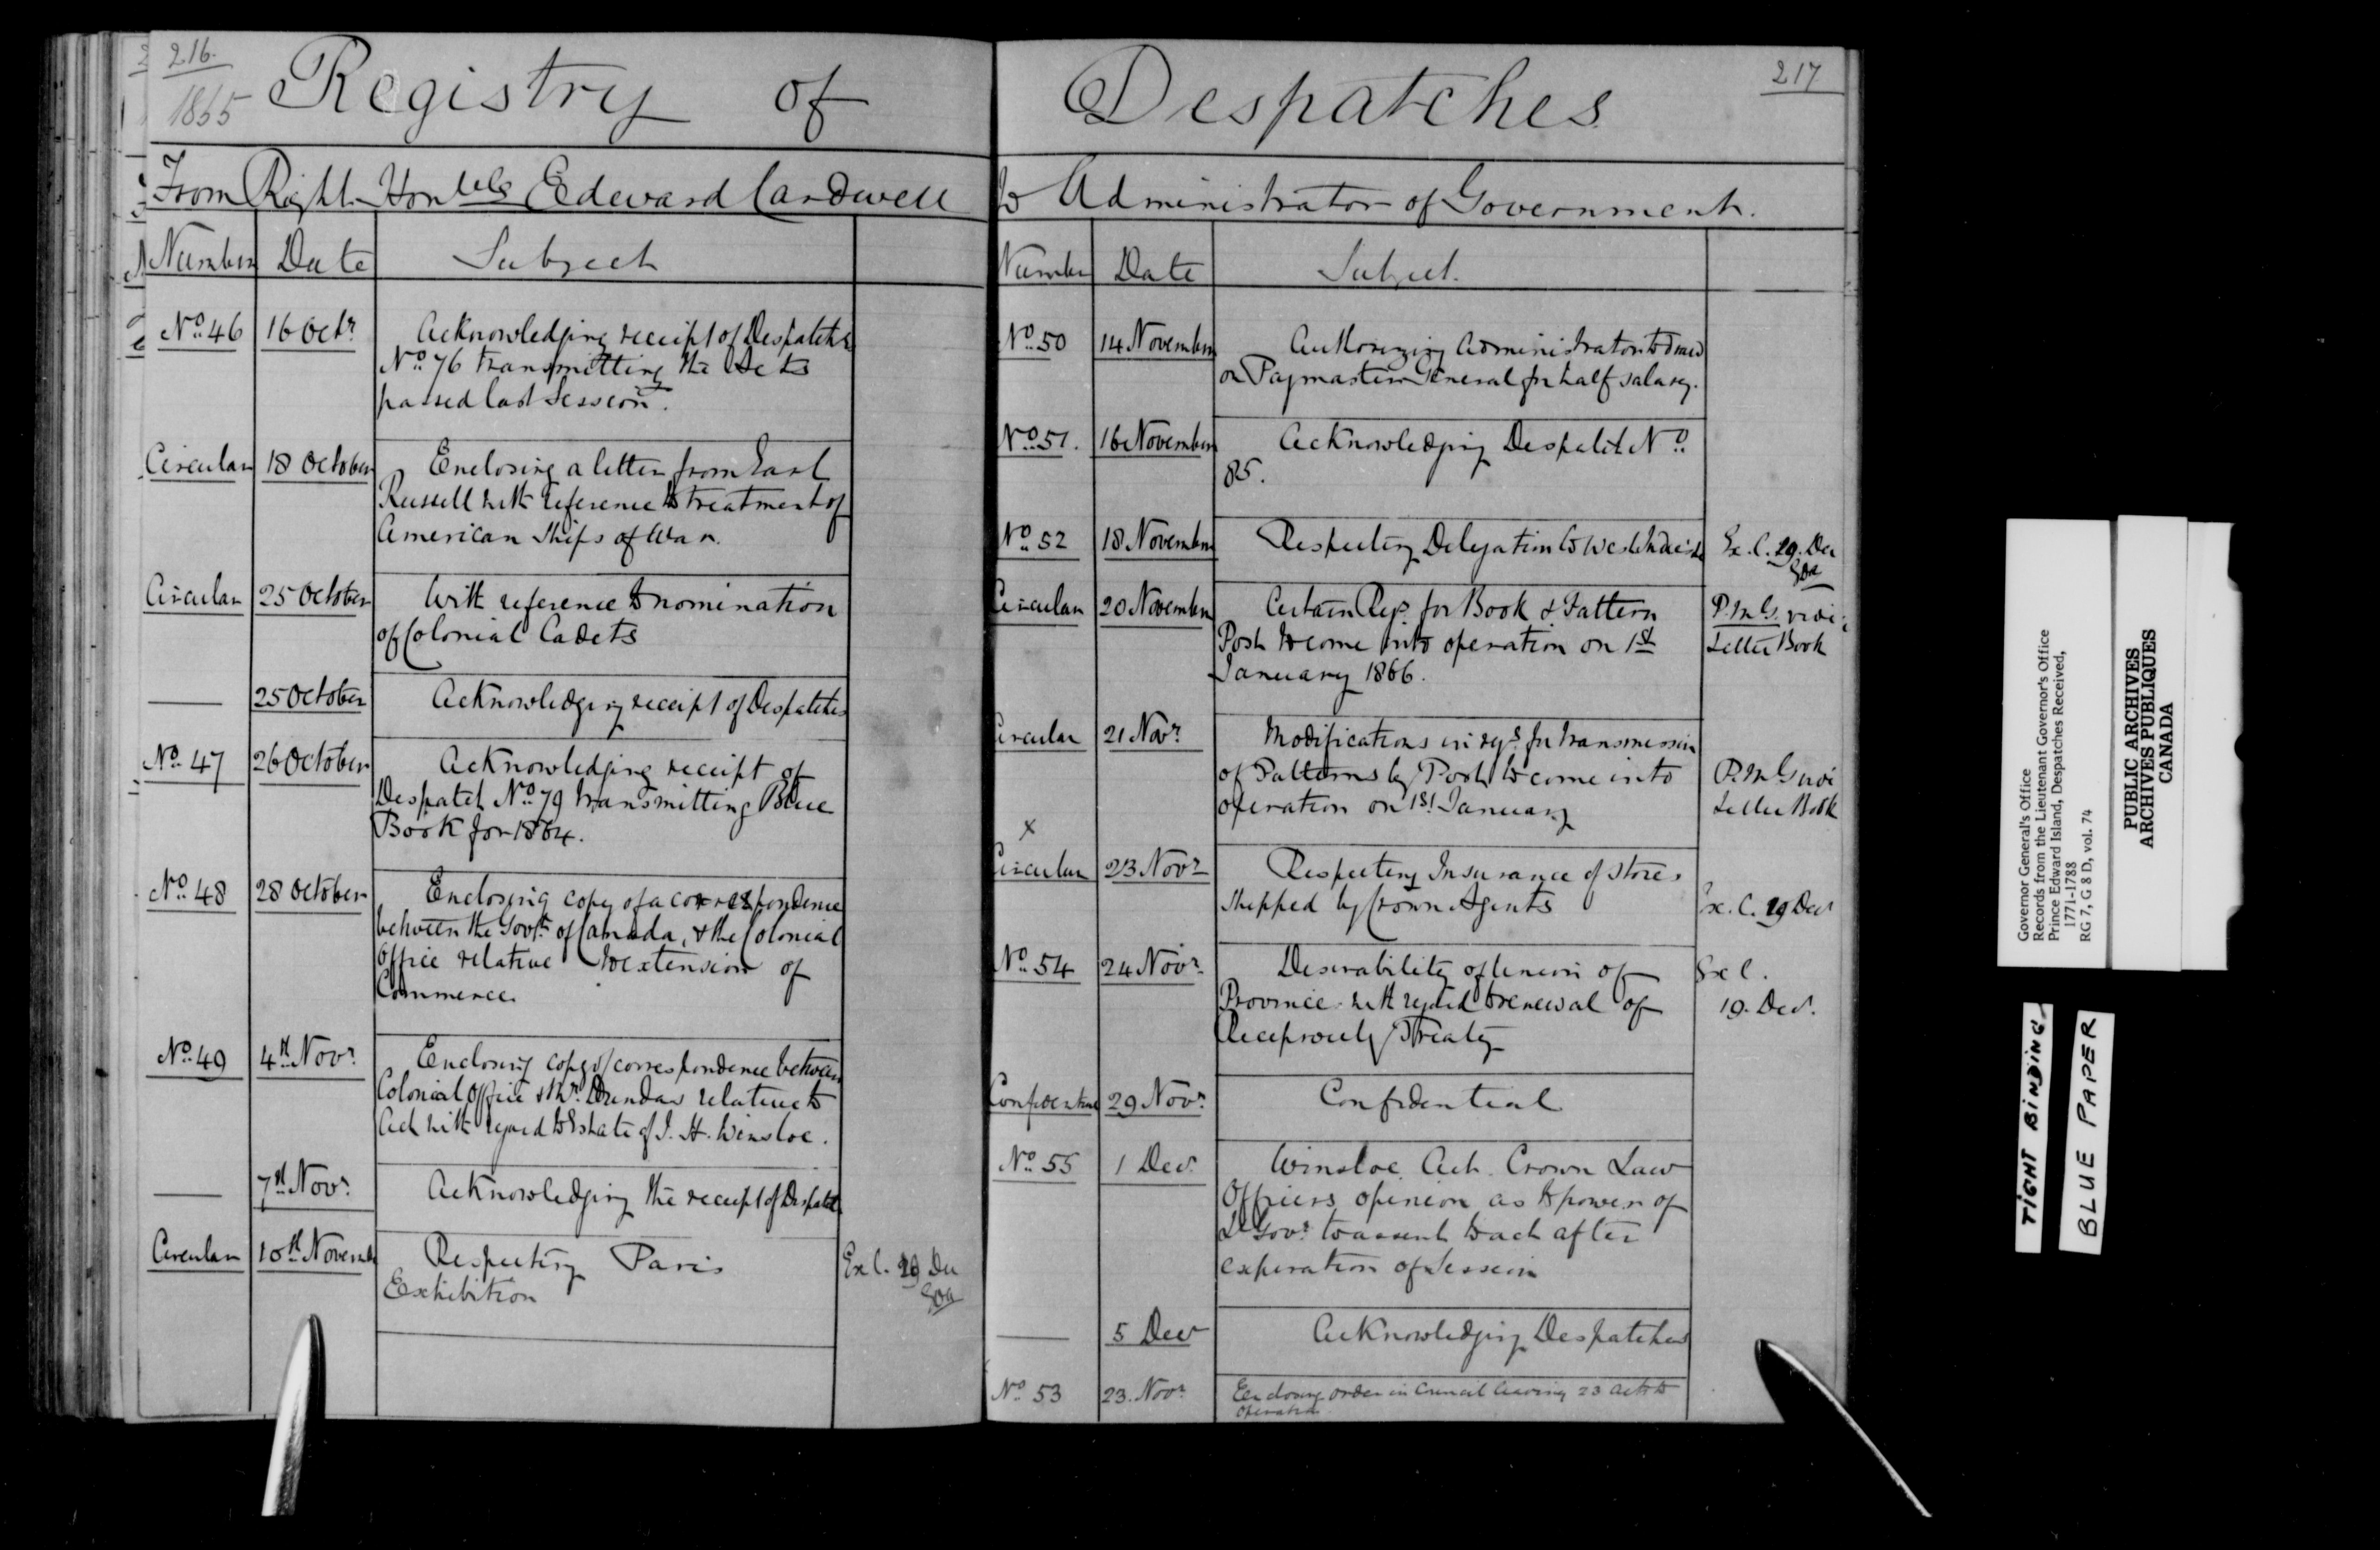 216.
1865
Registry of
From Right Honble Edward Cardwell
Number Date Subject
No. 46 16 Octr. Acknowledging receipt of Despatch
No. 76 transmitting the Acts
passed last Session.
Circular 18 October Enclosing a letter from Earl
Russell with reference to treatment of
American Ships of War.
Circular 25 October With reference to nomination
of Colonial Cadets
25 October Acknowledging receipt of Despatches
No. 47 26 October Acknowledging receipt of
Despatch No. 79 transmitting Blue
Book for 1864.
No. 48 28 October Enclosing copy of a correspondence
between the Govt. of Canada, & the Colonial
Office relative to extension of
Commerce.
No. 49 4th Novr. Enclosing copy of correspondence between
Colonial Office & Mr. Dundas relative to
Act with regard to Estate of J. H. Winsloe.
7th Novr. Acknowledging the receipt of Despatch
Circular 10th Novemb Respecting Paris
Exhibition
Ex C. 19 Dec
217
Despatches
to Administrator of Government.
Number Date Subject.
No. 50 14 November Authorizing Administrator to draw
on Paymaster General for half salary.
No. 51. 16 November Acknowledging Despatch No.
85.
No. 52 18 November Respecting Delegation to West Indies &c Ex. C. 19. Dec
Circular 20 November Certain Regs. for Book & Pattern
Post to come into operation on 1st
January 1866.
P.M.G. vide
Letter Book
Circular 21 Novr. Modifications in regs. for transmission
of Patterns by Post to come into
operation on 1st January
P.M.G. vide
Letter Book
x
Circular 23 Novr Respecting Insurance of Stores
shipped by Crown Agents Ex. C. 19 Decr
No. 54 24 Novr. Desirability of Union of
Province with regard to renewal of
Reciprocity Treaty
Ex C.
19. Decr.
Confidential 29 Novr. Confidential
No. 55 1 Decr. Winsloe Act. Crown Law
Officers opinion as to power of
Lt Govr. to assent to act after
expiration of Session
5 Decr Acknowledging Despatches
No. 53 23. Novr. Enclosing order in Council leaving 23 acts to
operation.
Governor General's Office
Records from the Lieutenant Governor's Office
Prince Edward Island, Despatches Received,
1771-1788
RG 7, G 8 D, vol. 74
PUBLIC ARCHIVES
ARCHIVES PUBLIQUES
CANADA
TIGHT BINDING
BLUE PAPER